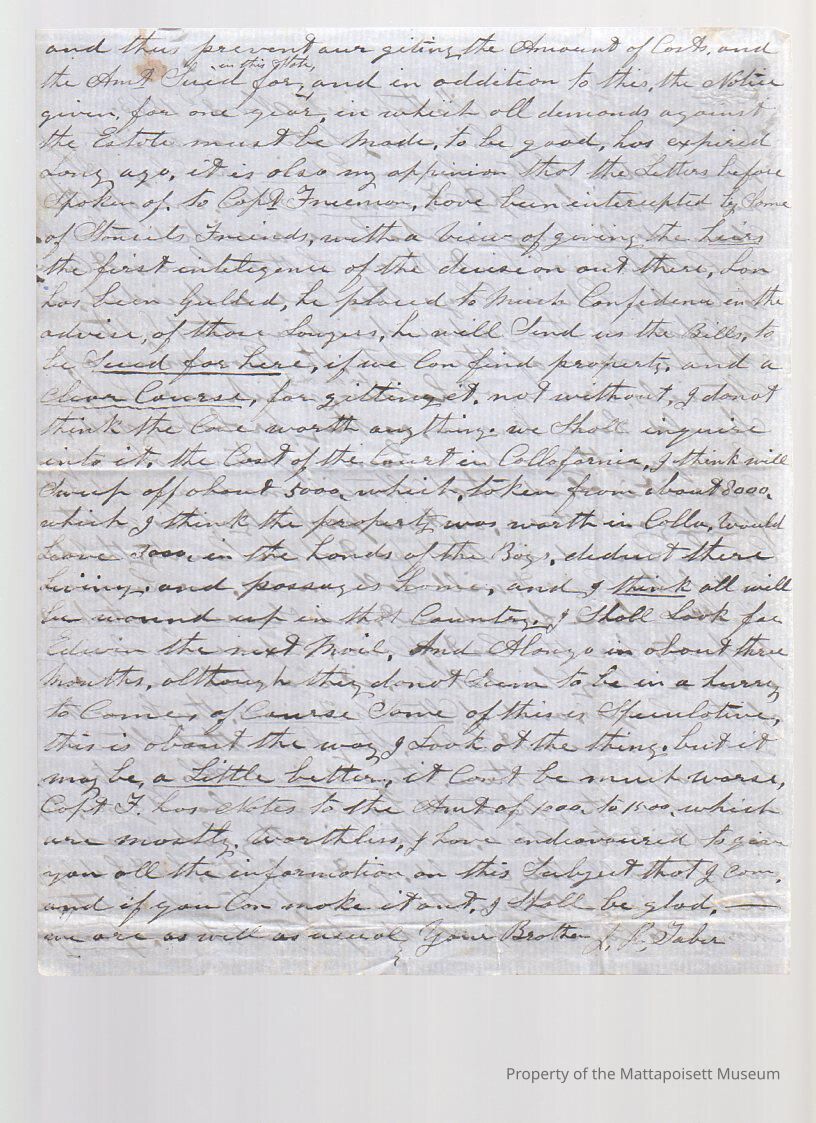 and thus prevent our giting, the Amount of Costs, and
in this State,
the Amt Sued for, and in addition to this, the Notice
given, for one year, in which all demands against
the Estate must be made, to be good, has expired
Long ago, it is also my oppinion that the Letters before
Spoken of, to Capt Freeman, have been intercepted by Some
of Friends, with a View of giving the heirs
the first inteligence of the decision out there,
has been Gulled, he placed to much Confidence in the
advise, of those Lawyers, he will Send us the Bills, to
be Sued for here, if we Can find property, and a
Clear Course, for gitting it, not without, I do not
think the Case worth anything. we Shall inquire
into it, the Cost of the Court in Calafornia, I think will
Swup off about 5000, which, taken from about 8000,
which I think the property was worth in Calla, Would
Leave 3000, in the hands of the Boys, deduct there
Living, and passage home, and I think all will
be wound up in that Country, I Shall Look for
Edwin the next Mail, And Alonzo in about three
Months, although they do not Seem to be in a hurry
to Come, of Course Some of this is Speculative,
this is about the way I Look at the thing, but it
may be, a Little better, it Can't be much worse,
Capt F. has Notes to the Amt of 1000, to 1500, which
are mostly, Worthless, I have endeavoured to give
you all the information, on this Subject that I can,
and if you Can make it out, I Shall be glad,
we are as well as usual, Your Brother J. R. Taber
Property of the Mattapoisett Museum